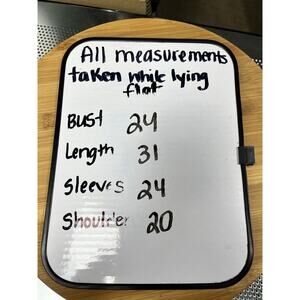 All measurements
taken while lying
flat
Bust 24
Length 31
Sleeves 24
Shoulder 20